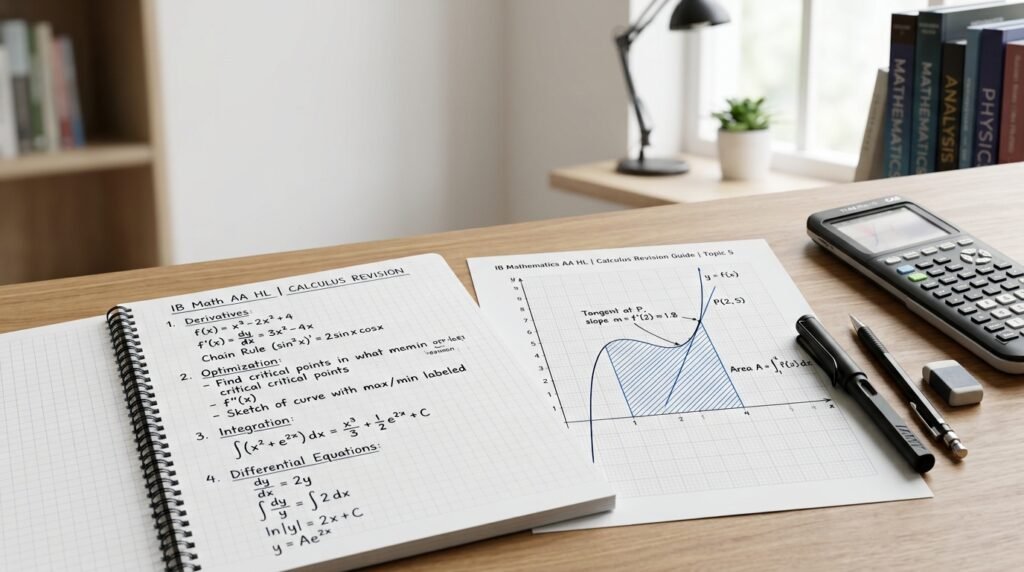 IB Math AA HL | CALCULUS REVISION
1. Derivatives:
f(x) = x³ - 2x² + 4
f'(x) = dy/dx = 3x² - 4x
Chain Rule (sin²x)' = 2sinx cosx
2. Optimization:
- Find critical points in what memin
critical critical points
- f"(x)
- Sketch of curve with max/min labeled
3. Integration:
∫(x² + e²ˣ) dx = x³/3 + 1/2 e²ˣ + C
4. Differential Equations:
dy/dx = 2y
∫ dy/y = ∫ 2 dx
ln|y| = 2x + C
y = Ae²ˣ
IB Mathematics AA HL | Calculus Revision Guide | Topic 5
y
y = f(x)
P(2, 5)
Tangent at P,
slope m = f'(2) = 1.8
Area A =
1
2
4
x
MATHEMATICS
MATHEMATICS
ANALYSIS
PHYSIC